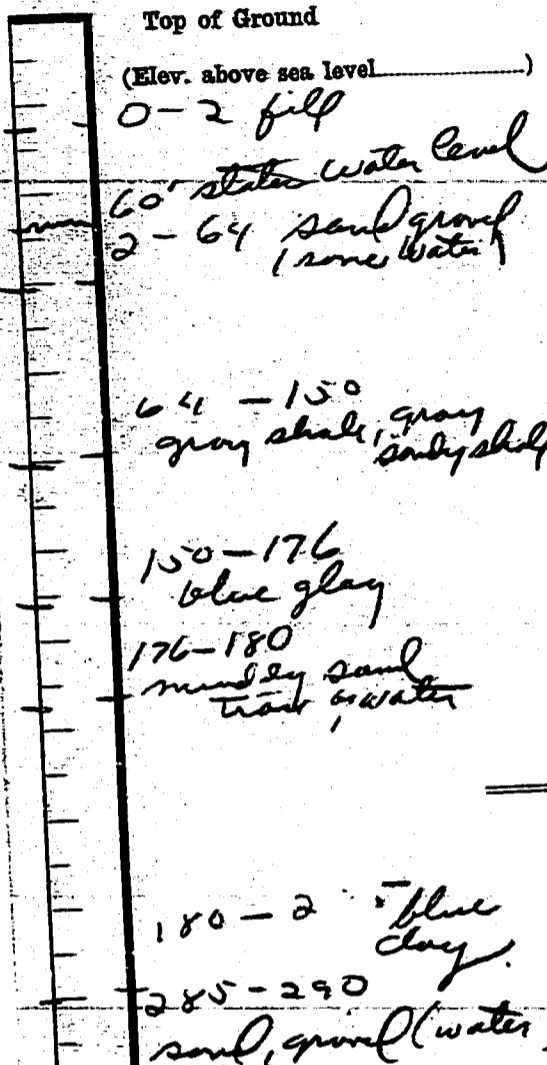 Top of Ground
(Elev. above sea level)
0-2 fill
60' static water level
2-64 sand gravel
(some water)
64-150
gray shale, gray
sandy shale
150-176
blue clay
176-180
muddy sand
water
180-2 blue
clay.
285-290
sand, gravel (water